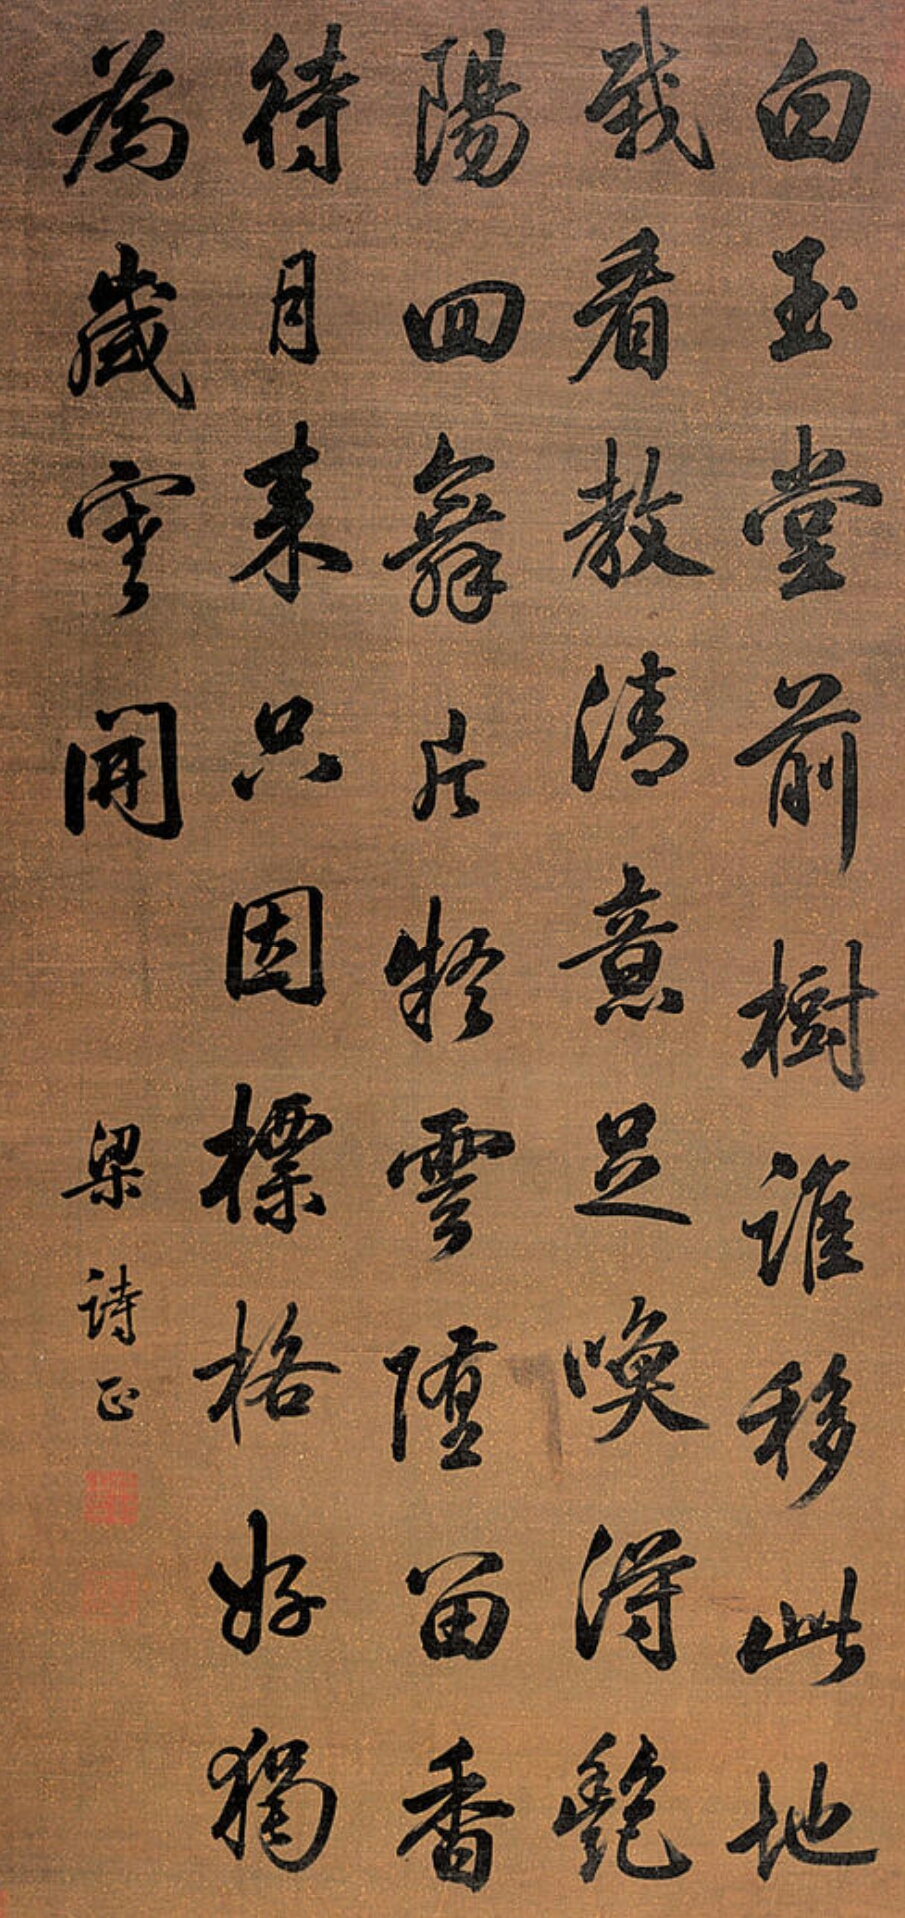 白玉堂前樹誰移此地
栽看教清意足喚得艷
陽回舞片凝雲堕留香
待月来只因標格好獨
為歲寒開
梁詩正